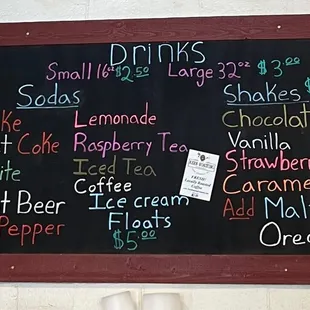 Drinks
Small 16oz $2.50 Large 32oz $3.00
Sodas
ke
t Coke
ite
t Beer
Pepper
Lemonade
Raspberry Tea
Iced Tea
Coffee
Ice cream
Floats
$5.00
Shakes $
Chocolat
Vanilla
Strawberr
Carame
Add Mal
Oreo